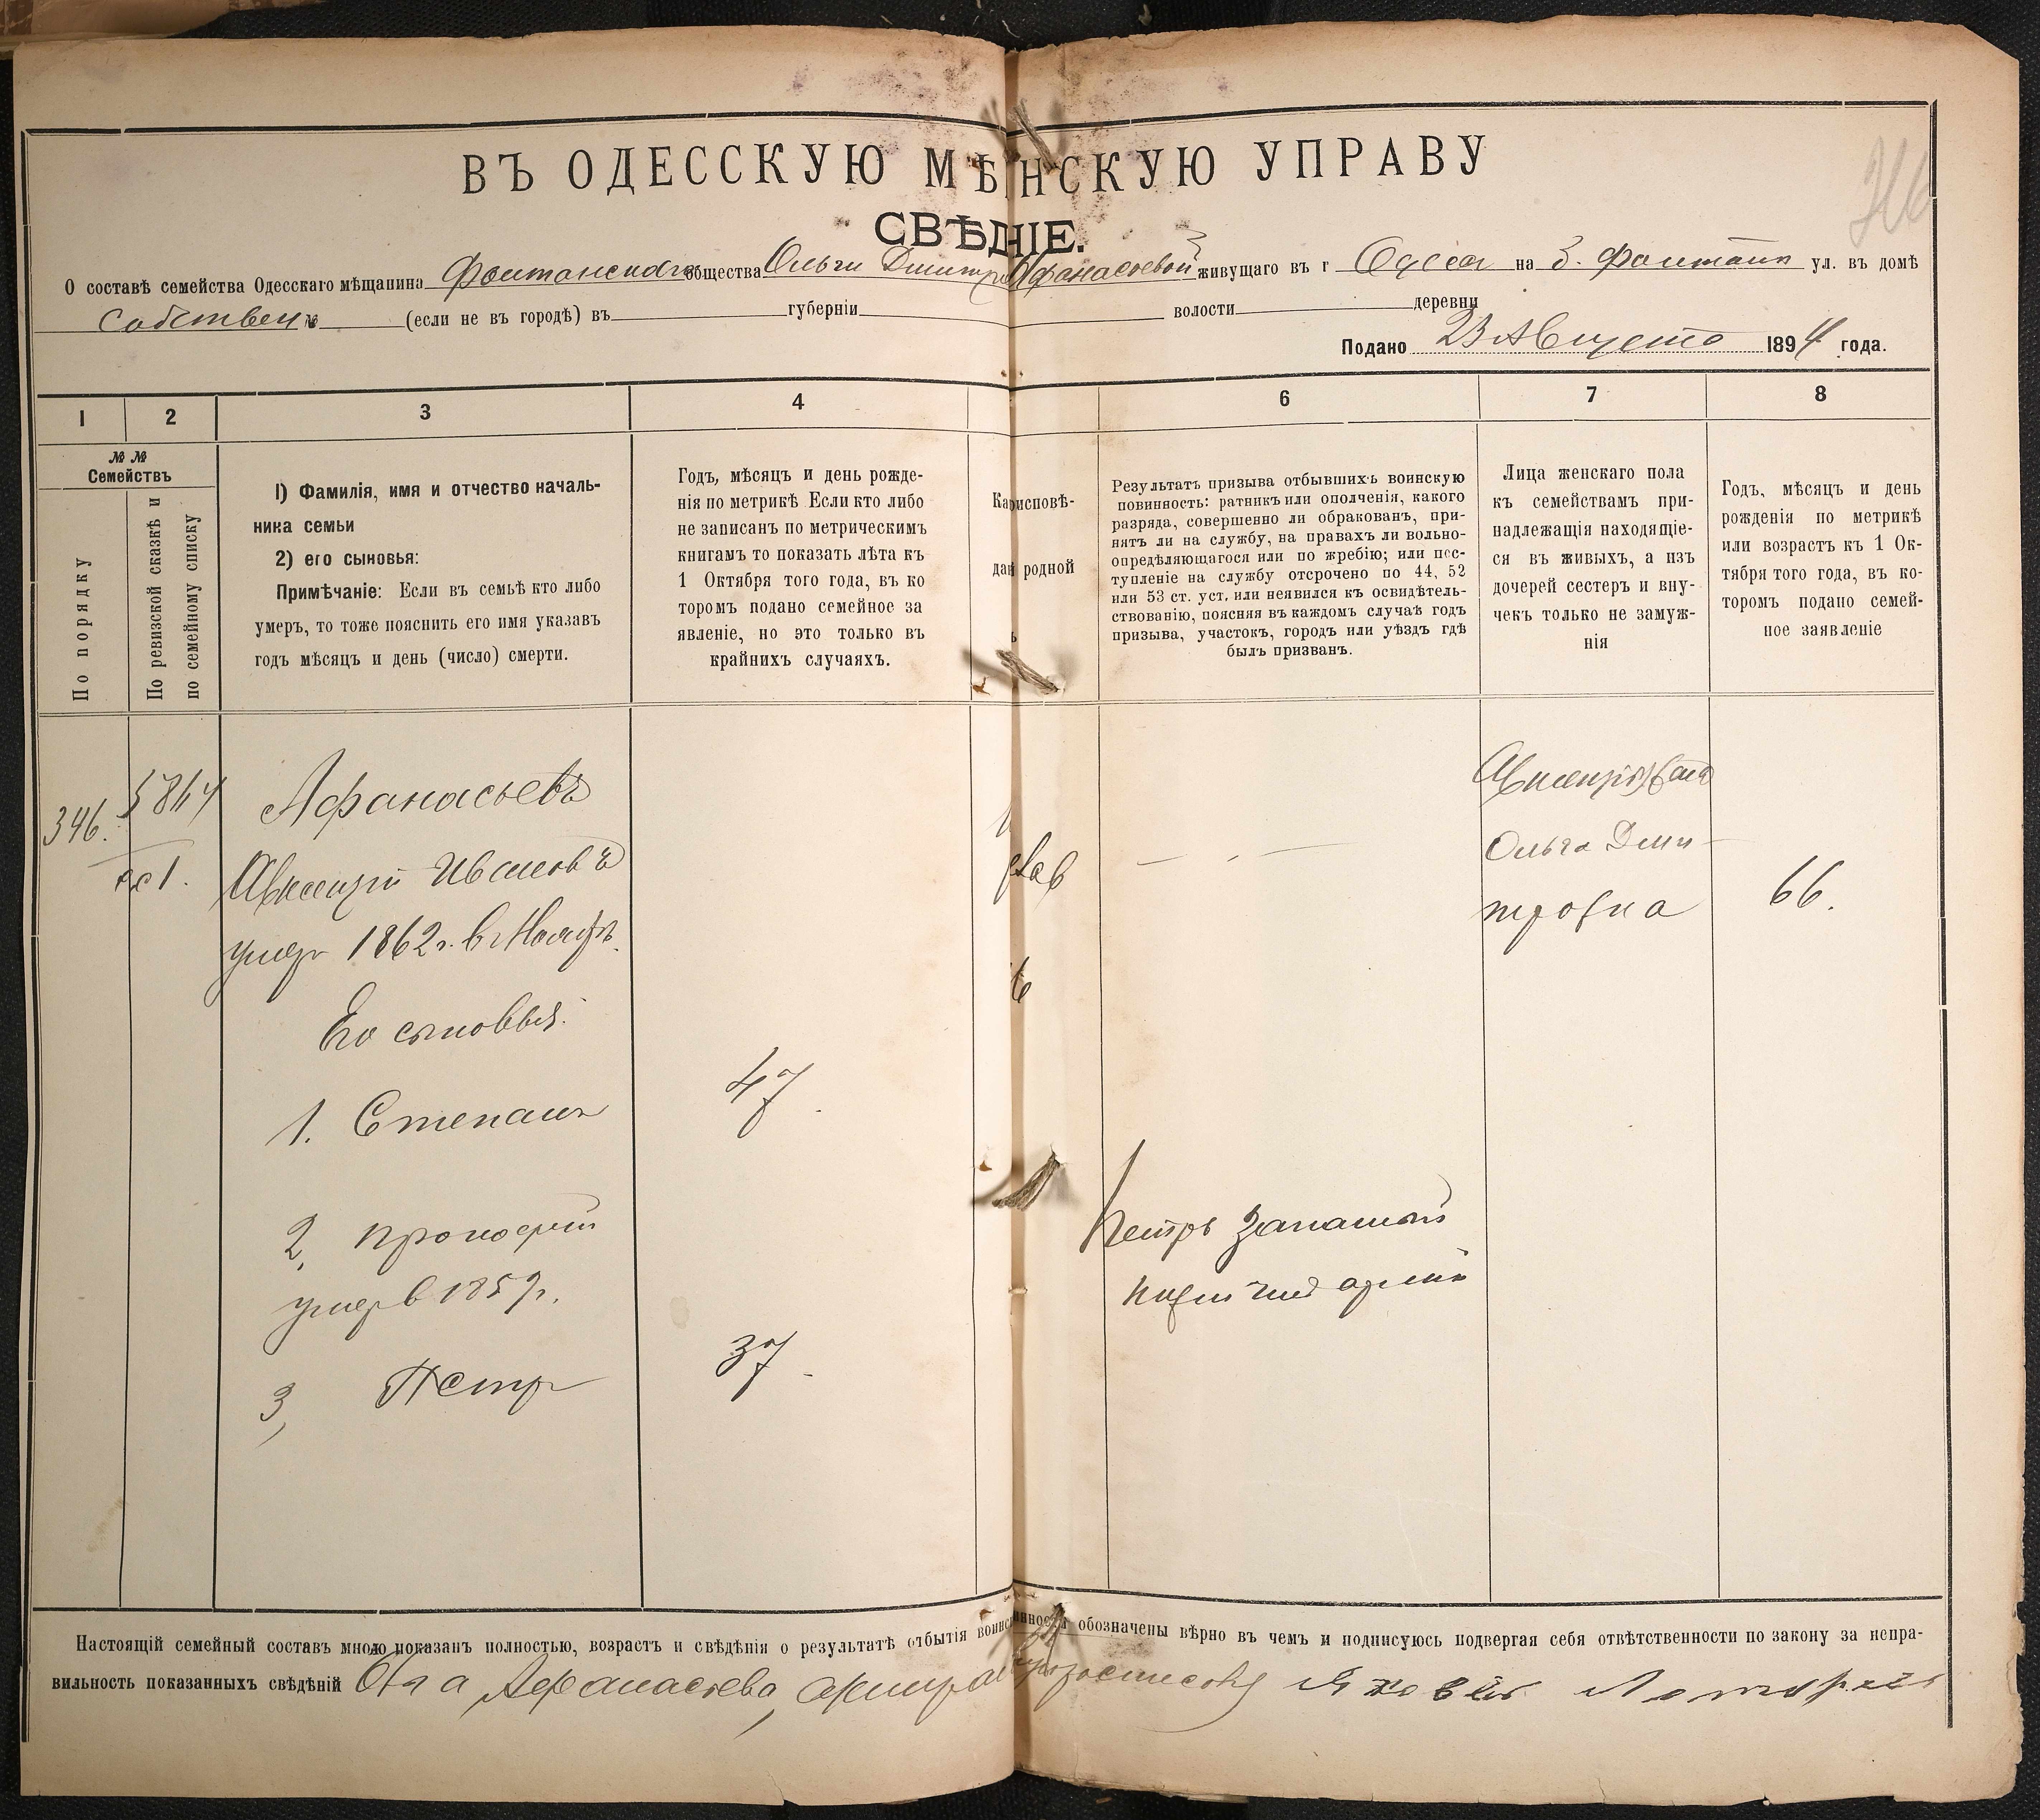 ВЪ ОДЕССКУЮ МѢ НСКУЮ УПРАВУ
СВѢД НІЕ.
О составѣ семейства Одесскаго мѣщанина Фонтанскаго общества Ольги Дмитр Афанасьевой живущаго въ г Одесса на Б. Фонтанъ ул. въ домѣ
Собствен № (если не въ городѣ) въ губерніи волости деревни
Подано 23 Августа 1894 года.
1 2 3 4 6 7 8
№ №
Семействъ
По порядку
По ревизской сказкѣ и
по семейному списку
1) Фамилія, имя и отчество началь-
ника семьи
2) его сыновья:
Примѣчаніе: Если въ семьѣ кто либо
умеръ, то тоже пояснить его имя указавъ
годъ мѣсяцъ и день (число) смерти.
Годъ, мѣсяцъ и день рожде-
нія по метрикѣ Если кто либо
не записанъ по метрическимъ
книгамъ то показать лѣта къ
1 Октября того года, въ ко
торомъ подано семейное за
явленіе, но это только въ
крайнихъ случаяхъ.
Ка исповѣ-
дан родной
Результатъ призыва отбывшихъ воинскую
повинность: ратникъ или ополченія, какого
разряда, совершенно ли обракованъ, при-
нятъ ли на службу, на правахъ ли вольно-
опредѣляющагося или по жребію; или пос-
тупленіе на службу отсрочено по 44, 52
или 53 ст. уст. или неявился къ освидѣтель-
ствованію, поясняя въ каждомъ случаѣ годъ
призыва, участокъ, городъ или уѣздъ гдѣ
былъ призванъ.
Лица женскаго пола
къ семействамъ при-
надлежащія находящіе-
ся въ живыхъ, а изъ
дочерей сестеръ и вну-
чекъ только не замуж-
нія
Годъ, мѣсяцъ и день
рожденія по метрикѣ
или возрастъ къ 1 Ок-
тября того года, въ ко-
торомъ подано семей-
ное заявленіе
346.
Афанасьевъ
Авксентій Ивановъ
умеръ 1862 г. в Ноябр.
Его сыновья:
1. Степанъ
47.
2, Прокофій
умер в 1859 г.
3, Петр
37.
Петръ запасный
нижн чин арміи
Ольга Дми-
тровна
66.
Настоящій семейный составъ мною показанъ полностью, возрастъ и свѣдѣнія о результатѣ отбытія воинс инности обозначены вѣрно въ чемъ и подписуюсь подвергая себя отвѣтственности по закону за непра-
вильность показанныхъ свѣдѣній Афанасьева,